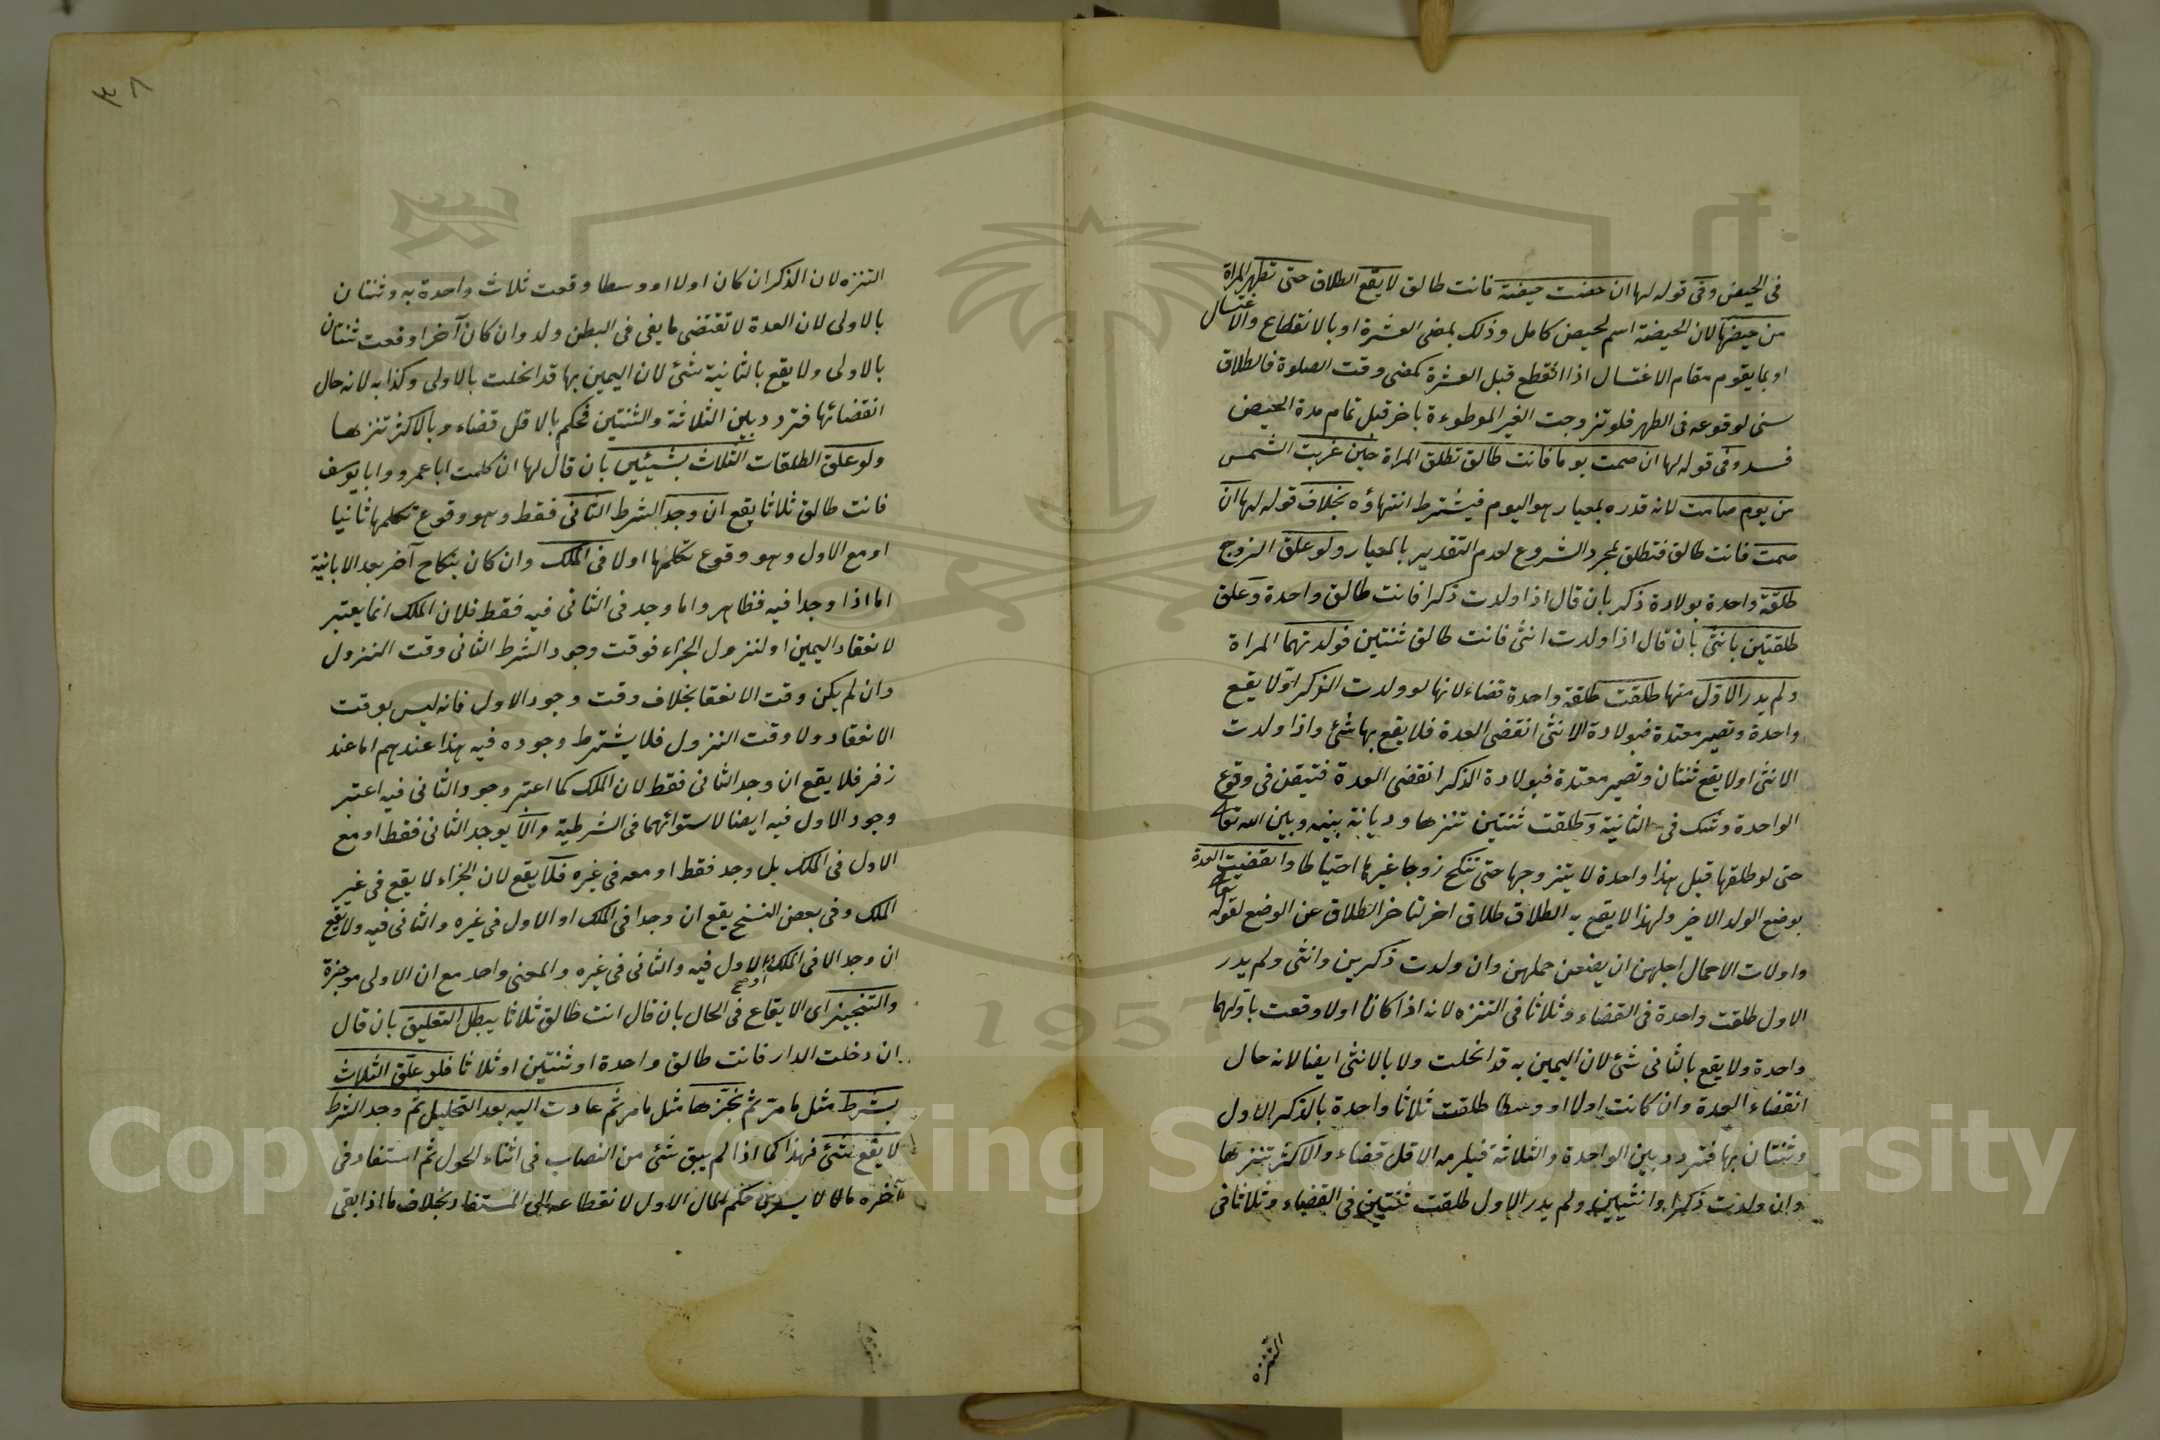 في الحيض وفي قوله لها ان حضت حيضة فانت طالق لا يقع الطلاق حتى تطهر المراة
من حيضها لان الحيضة اسم لحيض كامل وذلك بمضى العشرة او بالانقطاع والاغتسال
او بما يقوم مقام الاغتسال اذا انقطع قبل العشرة كمضى وقت الصلوة فالطلاق
سنى لوقوعه فى الطهر فلو تزوجت الغير الموطوءة باخر قبل تمام مدة الحيض
فسد وفى قوله لها ان صمت يوما فانت طالق تطلق المراة حين غربت الشمس
من يوم صامت لانه قدره بمعيار هو اليوم فيشترط انتهاؤه بخلاف قوله لها ان
صمت فانت طالق فتطلق بمجرد الشروع لعدم التقدير بالمعيار ولو علق الزوج
طلقة واحدة بولادة ذكر بان قال اذا ولدت ذكرا فانت طالق واحدة وعلق
طلقتين بانثى بان قال اذا ولدت انثى فانت طالق ثنتين فولدتهما المراة
ولم يدر الاول منها طلقت طلقة واحدة قضاء لانها لو ولدت الذكر اولا يقع
واحدة وتصير معتدة فبولادة الانثى انقضى العدة فلا يقع بها شئ واذا ولدت
الانثى اولا يقع ثنتان وتصير معتدة فبولادة الذكر انقضى العدة فتيقن فى وقوع
الواحدة وشك فى الثانية وطلقت ثنتين تنزها وديانة بينه وبين الله تعالى
حتى لو طلقها قبل هذا واحدة لا يتزوجها حتى تنكح زوجا غيره احتياطا وانقضيت العدة
بوضع الولد الاخير ولهذا لا يقع به الطلاق طلاق اخر لتاخر الطلاق عن الوضع لقوله تعالى
واولات الاحمال اجلهن ان يضعن حملهن وان ولدت ذكرين وانثى ولم يدر
الاول طلقت واحدة فى القضاء وثلاثا فى التنزه لانه اذا كانا اولا وقعت باولهما
واحدة ولا يقع بالثانى شئ لان اليمين به قد انحلت ولا بالانثى ايضا لانه حال
انقضاء العدة وان كانت اولا او وسطا طلقت ثلاثا واحدة بالذكر الاول
وثنتان بها فتردد بين الواحدة والثلاثة فيلزمه الاقل قضاء والاكثر تنزها
وان ولدت ذكرا وانثيين ولم يدر الاول طلقت ثنتين فى القضاء وثلاثا فى
التنزه
٣٨
التنزه لان الذكر ان كان اولا او وسطا وقعت ثلاث واحدة به وثنتان
بالاولى لان العدة لا تقتضى ما بقى فى البطن ولد وان كان آخرا وقعت ثنتان
بالاولى ولا يقع بالثانية شئ لان اليمين بها قد انحلت بالاولى وكذا به لانه حال
انقضائها فتردد بين الثلاثة والثنتين فحكم بالاقل قضاء وبالاكثر تنزها
ولو علق الطلقات الثلاث بشيئين بان قال لها ان كلمت ابا عمرو وابا يوسف
فانت طالق ثلاثا يقع ان وجد الشرط الثانى فقط وهو وقوع تكلمها ثانيا
او مع الاول وهو وقوع تكلمها اولا فى الملك وان كان بنكاح آخر بعد الابانة
اما اذا وجدا فيه فظاهر واما وجد فى الثانى فيه فقط فلان الملك انما يعتبر
لانعقاد اليمين او لنزول الجزاء فوقت وجود الشرط الثانى وقت النزول
وان لم يكن وقت الانعقا بخلاف وقت وجود الاول فانه ليس بوقت
الانعقاد ولا وقت النزول فلا يشترط وجوده فيه هذا عندهم اما عند
زفر فلا يقع ان وجد الثانى فقط لان الملك كما اعتبر وجود الثانى فيه اعتبر
وجود الاول فيه ايضا لاستوائهما فى الشرطية والا يوجد الثانى فقط او مع
الاول فى الملك بل وجد فقط او معه فى غيره فلا يقع لان الجزاء لا يقع فى غير
الملك وفى بعض النسخ يقع ان وجدا فى الملك او الاول فى غيره والثانى فيه ولا يقع
ان وجد الا فى الملك او الاول فيه والثانى فى غيره والمعنى واحد مع ان الاولى موجزة
والتنجيز اى الايقاع فى الحال بان قال انت طالق ثلاثا يبطل التعليق بان قال
ان دخلت الدار فانت طالق واحدة او ثنتين او ثلاثا فلو علق الثلاث
بشرط مثل ما مر ثم نجزها مثل ما مر ثم عادت اليه بعد التحليل ثم وجد الشرط
لا يقع شئ فهذا كما اذا لم يبق شئ من النصاب فى اثناء الحول ثم استفاد فى
آخره مالا لا يسرى حكم المال الاول لانقطاعه الى المستفاد بخلاف ما اذا بقى
Copyright © King Saud University
1957